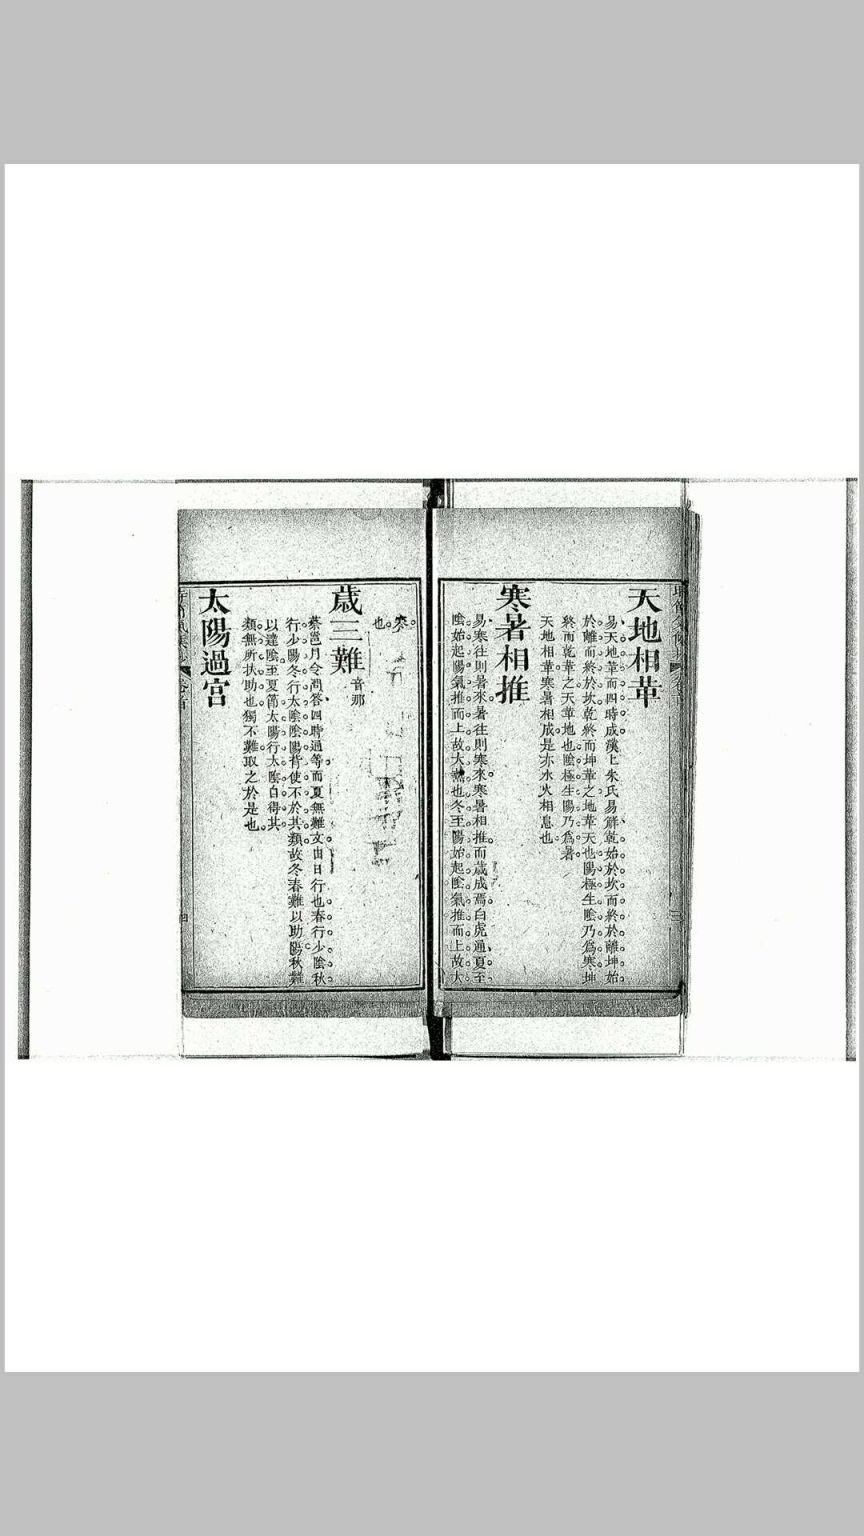 天地相革
易天地革而四時成漢上朱氏易解乾始於坎而終於離坤始
於離而終於坎乾終而坤革之地革天也陽極生陰乃爲寒坤
終而乾革之天革地也陰極生陽乃爲暑
天地相革寒暑相成是亦水火相息也
寒暑相推
易寒往則暑來暑往則寒來寒暑相推而歲成焉白虎通夏至
陰始起陽氣推而上故大熱也冬至陽始起陰氣推而上故大
寒
也
歲三難 音那
蔡邕月令問答四時通等而夏無難文由日行也春行少陰秋
行少陽冬行太陰陰陽背使不於其類故冬春難以助陽秋難
以達陰至夏節太陽行太陰自得其
類無所扶助也獨不難取之於是也
太陽過宮
卷首 四